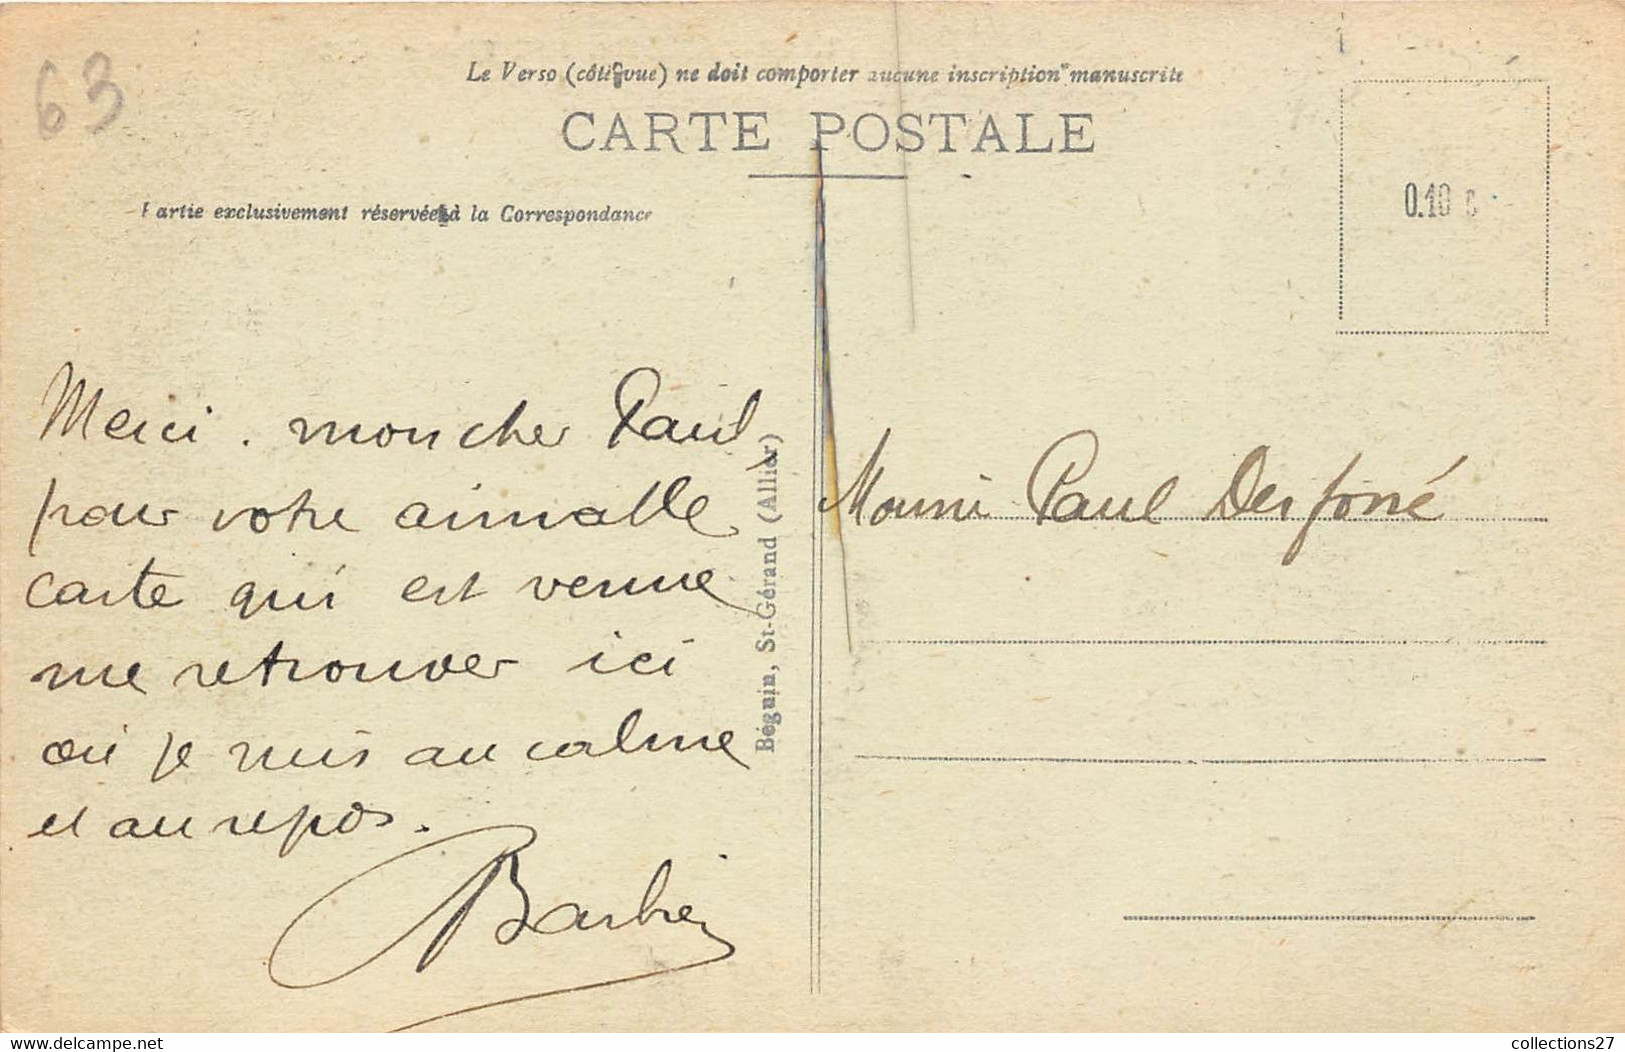 63
Le Verso (côté vue) ne doit comporter aucune inscription manuscrite
CARTE POSTALE
Partie exclusivement réservée à la Correspondance
0.10 c
Merci. mon cher Paul,
pour votre aimable
carte qui est venue
me retrouver ici
où je suis au calme
et au repos.
Barbier
Béguin, St-Gérand (Allier)
Paul
delcampe.net
collections27